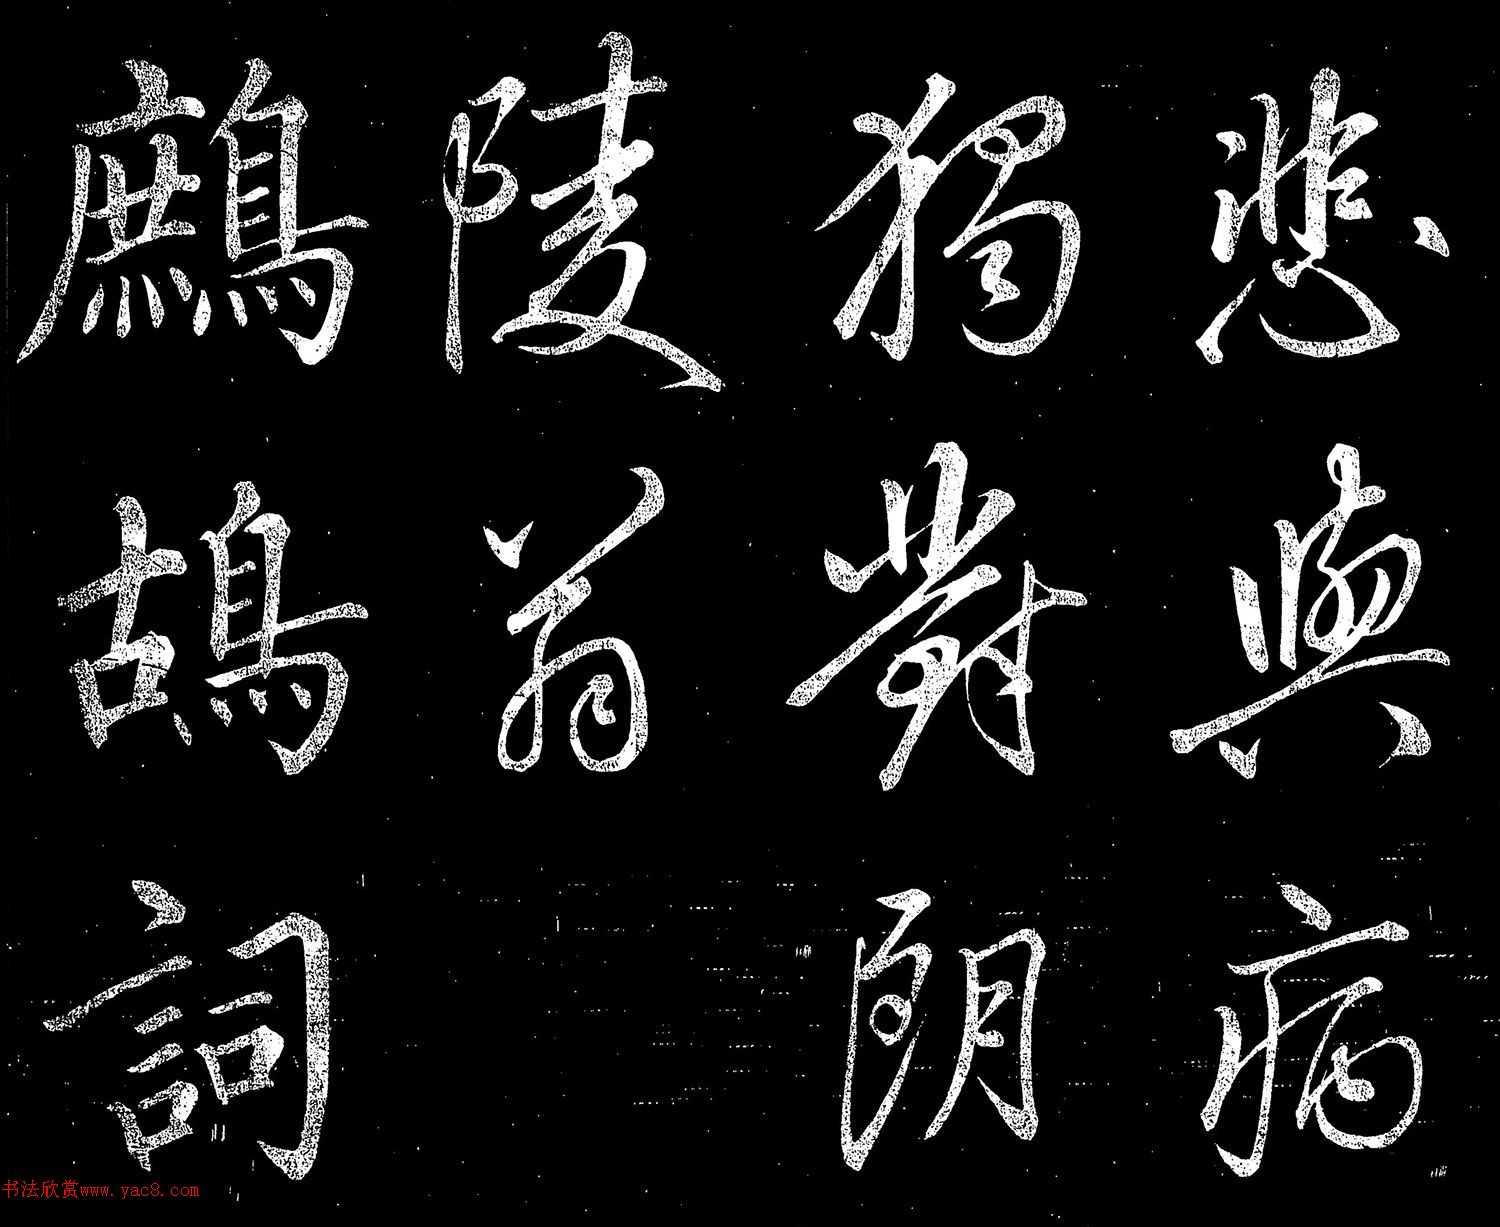 悲與病
獨對朗
陵翁
鷓鴣詞
书法欣赏www.yac8.com